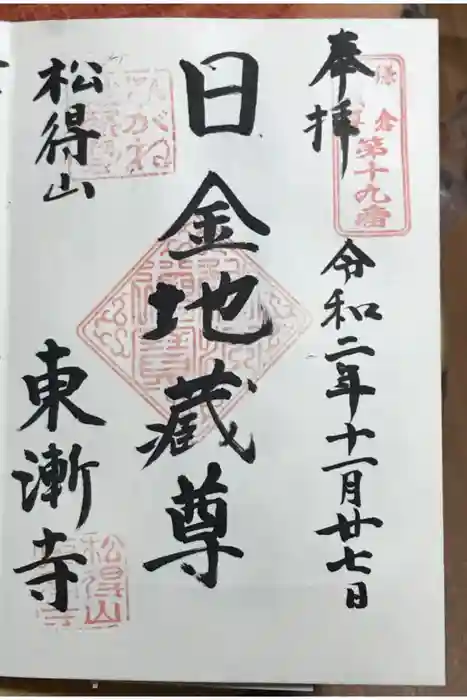 奉拝
鎌倉
第十九番
令和二年十一月廿七日
日金地蔵尊
ひがね
松得山
東漸寺
松得山